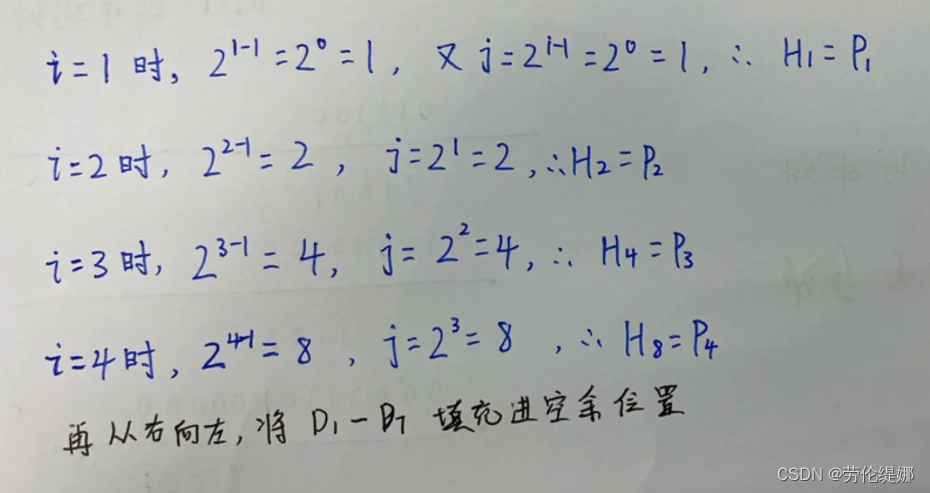 i=1 时, 2¹⁻¹=2⁰=1, 又 j=2ⁱ⁻¹=2⁰=1, ∴ H₁=P₁
i=2 时, 2²⁻¹=2, j=2¹=2, ∴H₂=P₂
i=3 时, 2³⁻¹=4, j=2²=4, ∴ H₄=P₃
i=4 时, 2⁴⁻¹=8, j=2³=8, ∴ H₈=P₄
再从右向左, 将 D₁-D₇ 填充进空余位置
CSDN @劳伦缇娜